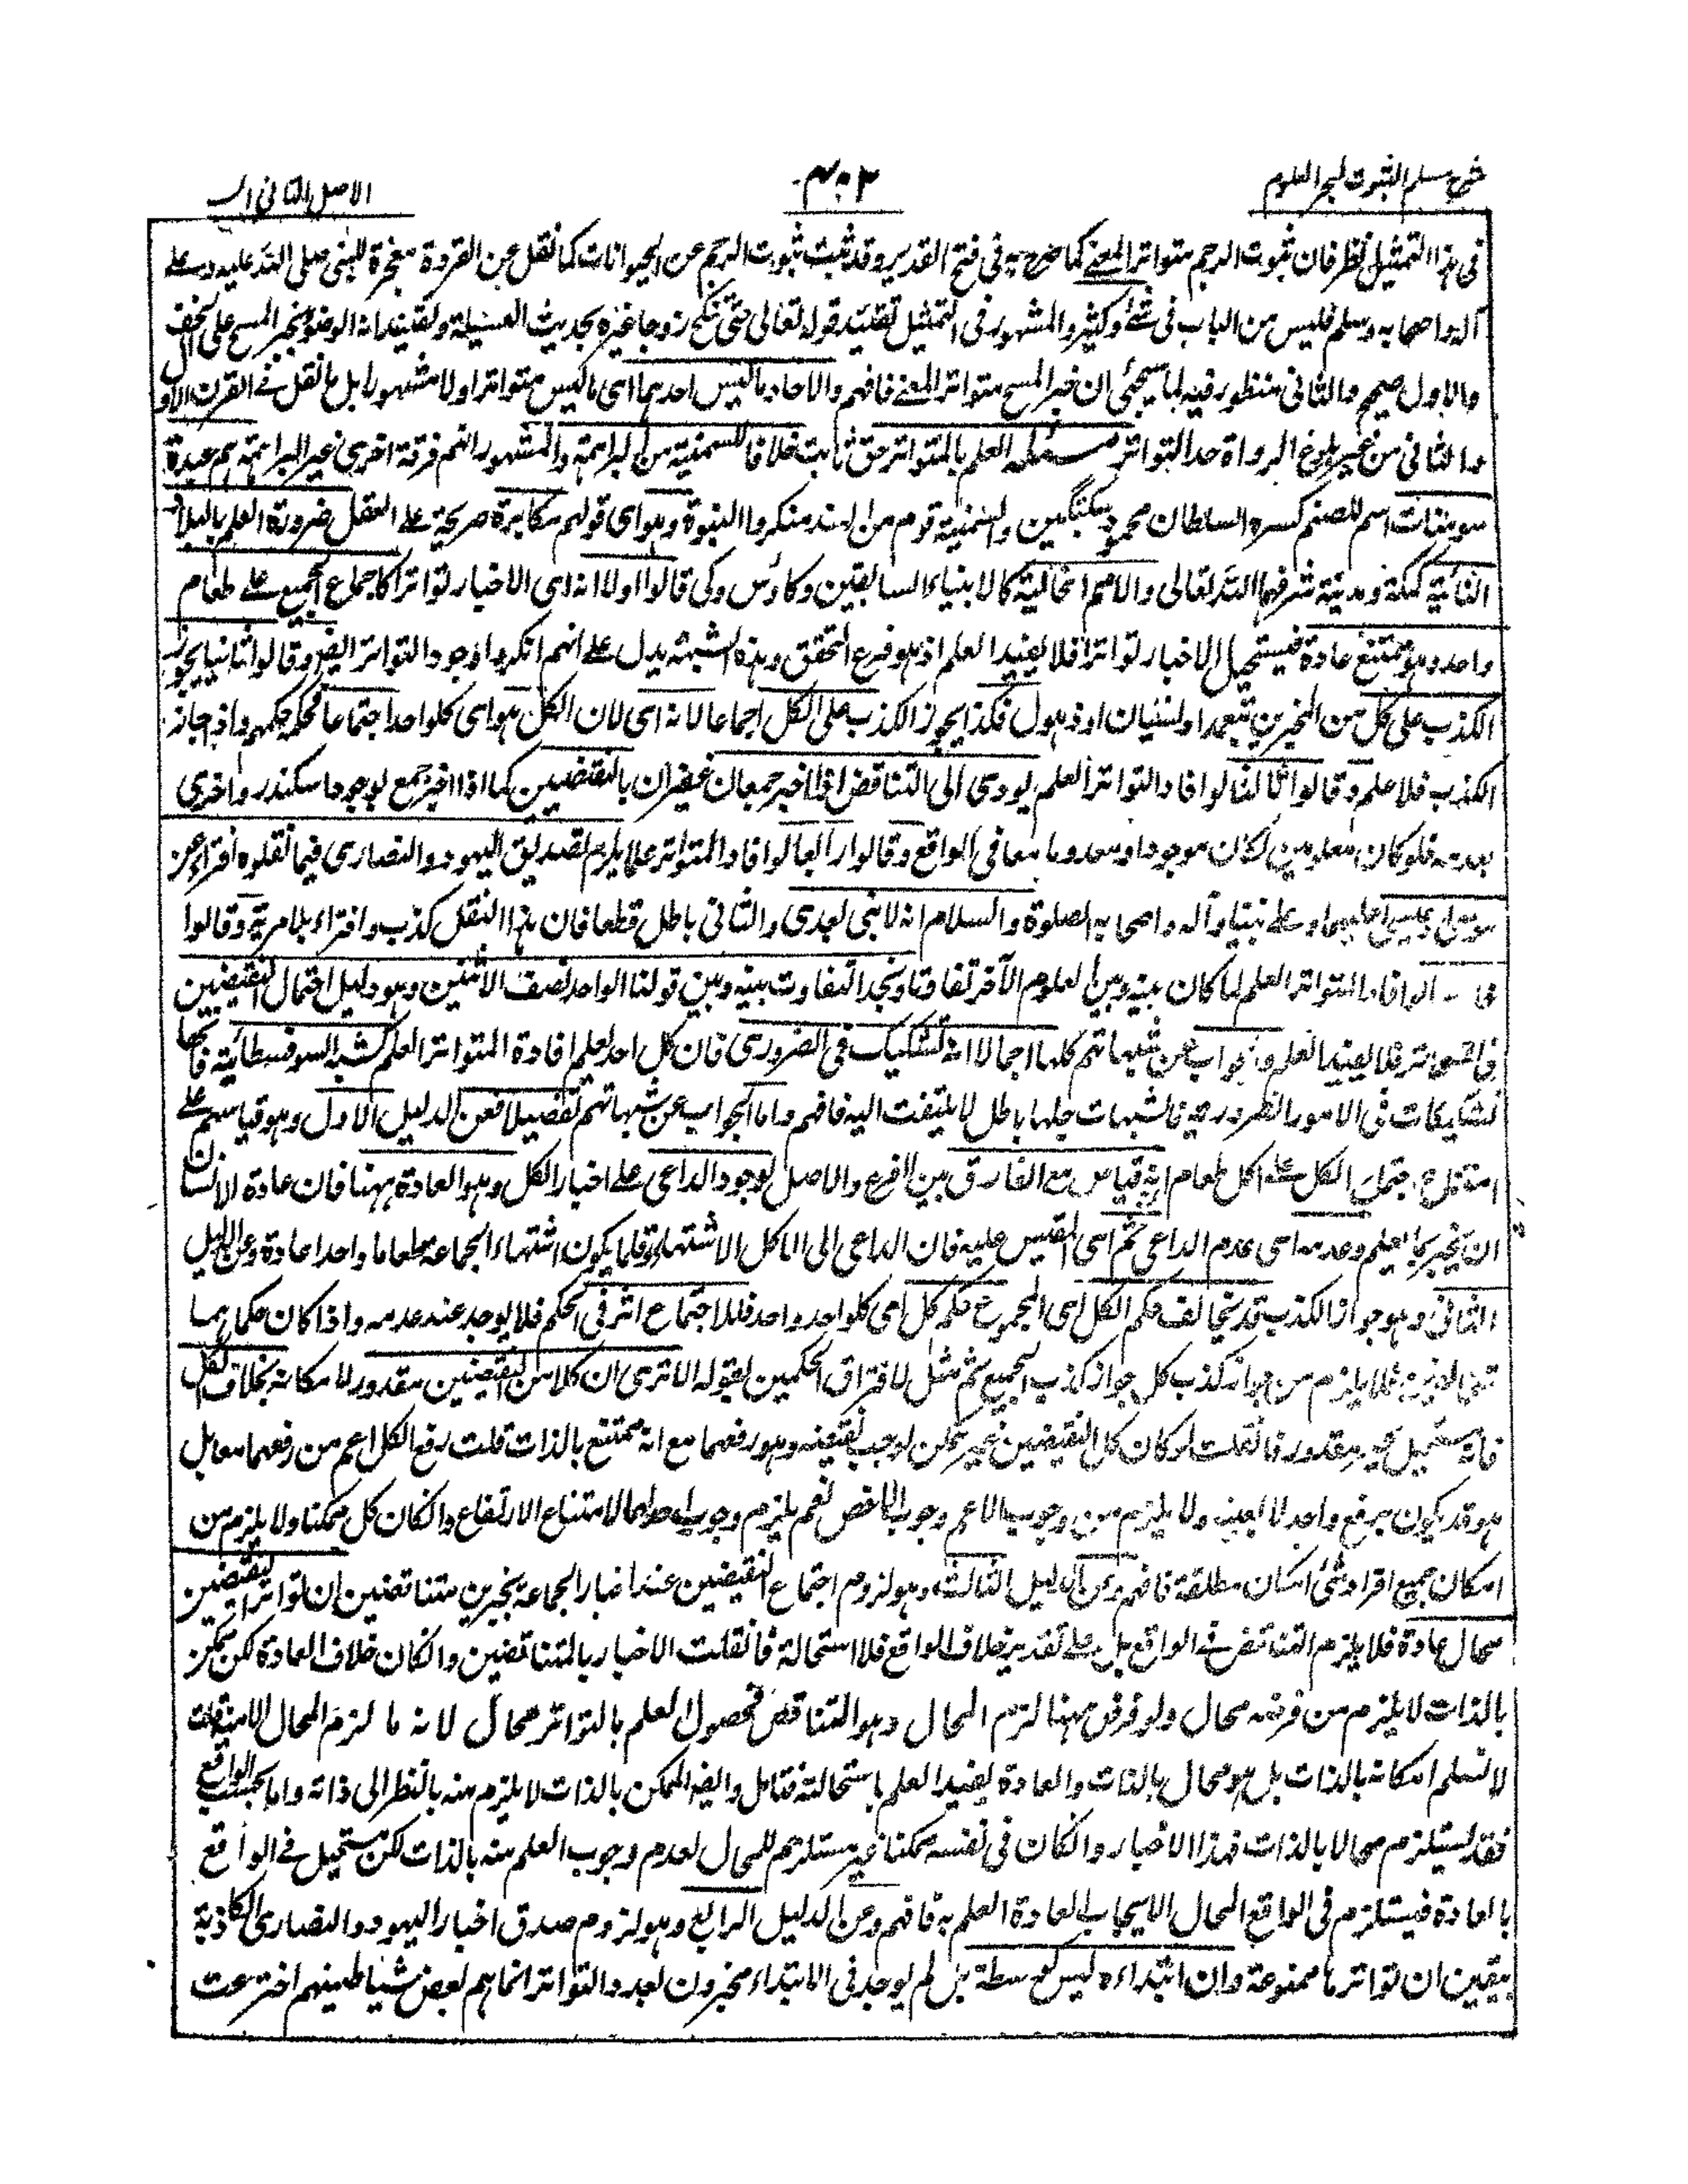 شرح مسلم الثبوت لبحر العلوم
۴۰۳
الاصل الثانی السنة
فی هذا التمثیل نظر فان ثبوت الرجم متواتر المعنی کما صرح به فی فتح القدیر وقد ثبت ثبوت الرجم عن الحیوانات کما نقل عن القردة معجزة للنبی صلی الله علیه وعلی
آله واصحابه وسلم فلیس من الباب فی شئ وکثیر والمشهور فی التمثیل تقیید قوله تعالی حتی تنکح زوجا غیره بحدیث العسیلة وتقیید آیة الوضوء بخبر المسح علی الخف
والاول صحیح والثانی منظور فیه لما سیجئی ان خبر المسح متواتر المعنی فافهم والآحاد ما لیس احدهما ای ما لیس متواترا ولا مشهورا بل ما نقل فی القرن الاول
والثانی من غیر بلوغ الرواة حد التواتر مسئلة العلم بالمتواتر حق ثابت خلافا للسمنیة من البراهمة والمشهور انهم فرقة اخری غیر البراهمة هم عبدة
سومنات اسم للصنم کسره السلطان محمود سبکتگین والسمنیة قوم من الهند منکروا النبوة وهو ای قولهم مکابرة صریحة علی العقل ضرورة العلم بالبلاد
النائیة کمکة ومدینة شرفهما الله تعالی والامم الخالیة کالانبیاء السابقین وکاؤس وکی قالوا اولا انه ای الاخبار تواترا کاجماع الجمیع علی طعام
واحد وهو ممتنع عادة فیستحیل الاخبار تواترا فلا یفید العلم اذ هو فرع التحقق وهذه الشبهة یدل علی انهم انکروا وجود التواتر ایضا وقالوا ثانیا یجوز
الکذب علی کل من المخبرین بتعمد او نسیان او ذهول فکذا یجوز الکذب علی الکل اجماعا لانه ای لان الکل هو ای کلواحد اجتماعا فحکمه حکمهم واذ جاز
الکذب فلا علم وقالوا ثالثا لو افاد التواتر العلم یودی الی التناقض اذا اخبر جمعان غفیران بالنقیضین کما اذا اخبر جمع لوجود اسکندر واخری
بعدمه فلو کان معلومین لکان موجودا ومعدوما معا فی الواقع وقالوا رابعا لو افاد المتواتر علما یلزم تصدیق الیهود والنصاری فیما نقلوه افتراء عن
موسی وعیسی علیهما وعلی نبینا وآله واصحابه الصلوة والسلام انه لا نبی بعدی والثانی باطل قطعا فان هذا النقل کذب وافتراء بلا مریة وقالوا
لو افاد المتواتر العلم لما کان بینه وبین العلوم الآخر تفاوتا ونجد التفاوت بینه وبین قولنا الواحد نصف الاثنین وهو دلیل احتمال النقیضین
فی المتواتر فلا یفید العلم والجواب عن شبهاتهم کلها اجمالا انه تشکیک فی الضروری فان کل احد یعلم افادة المتواتر العلم کشبه السوفسطائیة فانها
تشکیکات فی الامور الضروریة فالشبهات جلها باطل لا یلتفت الیه فافهم واما الجواب عن شبهاتهم تفصیلا فعن الدلیل الاول وهو قیاسهم علی
امتناع اجتماع الکل علی اکل طعام انه قیاس مع الفارق بین الفرع والاصل لوجود الداعی علی اخبار الکل وهو العادة ههنا فان عادة الانسان
ان یخبر بما یعلم وعدمه ای عدم الداعی ثم ای المقیس علیه فان الداعی الی الاکل الاشتهاء وقلما یکون اشتهاء الجماعة طعاما واحدا عادة وعن الدلیل
الثانی وهو جواز الکذب قد یخالف حکم الکل ای المجموع حکم کل ای کلواحد واحد فللاجتماع اثر فی الحکم فلا یوجد عند عدمه واذا کان حکماهما
متخالفین فلا یلزم من جواز کذب کل جواز کذب الجمیع ثم مثل لافتراق الحکمین بقوله الا تری ان کلا من النقیضین مقدور لامکانه بخلاف الکل
فانه مستحیل غیر مقدور فانقلت لو کان کلا النقیضین غیر ممکن لوجب نقیضه وهو رفعهما مع انه ممتنع بالذات قلت رفع الکل اعم من رفعهما معا بل
هو قد یکون برفع واحد لا بعینه ولا یلزم من وجوب الاعم وجوب الاخص نعم یلزم وجوب احدهما لامتناع الارتفاع والکان کل ممکنا ولا یلزم من
امکان جمیع افراد شئ امکان مطلقه فافهم وعن الدلیل الثالث وهو لزوم اجتماع النقیضین عند اخبار الجماعة بخبرین متناقضین ان تواتر النقیضین
محال عادة فلا یلزم التناقض فی الواقع بل علی تقدیر خلاف الواقع فلا استحالة فانقلت الاخبار بالمتناقضین والکان خلاف العادة لکن ممکن
بالذات لا یلزم من فرضه محال ولو فرض ههنا لزم المحال وهو التناقض فحصول العلم بالتواتر محال لانه ما لزم المحال الا منه قلت
لا نسلم امکانه بالذات بل هو محال بالذات والعادة یفید العلم باستحالته فتامل وایضا الممکن بالذات لا یلزم منه بالنظر الی ذاته واما بحسب الواقع
فقد یستلزم محالا بالذات فهذا الاخبار والکان فی نفسه ممکنا غیر مستلزم للمحال لعدم وجوب العلم منه بالذات لکن مستحیل فی الواقع
بالعادة فیستلزم فی الواقع المحال لایجاب العادة العلم به فافهم وعن الدلیل الرابع وهو لزوم صدق اخبار الیهود والنصاری الکاذبة
بیقین ان تواترها ممنوعة وان ابتداءه لیس کوسطه بل لم یوجد فی الابتداء مخبرون بعدد التواتر انما هم بعض شیاطینهم اخترعت